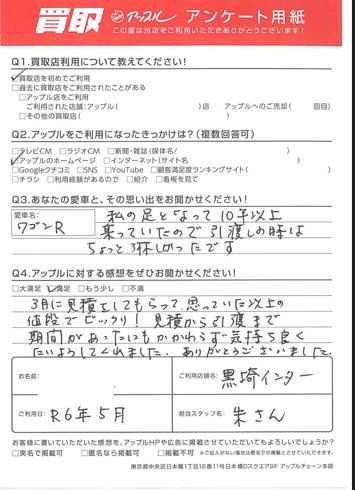 買取 アップル アンケート用紙
この度は当店をご利用いただきありがとうございます！
Q1.買取店利用について教えてください！
☑買取店を初めてご利用
□過去に買取店をご利用されたことがある
□アップル店をご利用
ご利用された店舗：アップル( )店 アップルへのご売却( 回目)
□その他の買取店( )
Q2.アップルをご利用になったきっかけは？(複数回答可)
□テレビCM □ラジオCM □新聞・雑誌(媒体名/ )
☑アップルのホームページ □インターネット(サイト名 )
□Googleクチコミ □SNS □YouTube □顧客満足度ランキングサイト( )
□チラシ □利用経験があるので □紹介 □看板を見て
Q3.あなたの愛車と、その思い出をお聞かせください！
愛車名：
ワゴンR
私の足となって10年以上
乗っていたので引渡しの時は
ちょっと淋しかったです
Q4.アップルに対する感想をぜひお聞かせください！
□大満足 ☑満足 □もう少し □不満
3月に見積をしてもらって、思っていた以上の
値段でビックリ！見積から引渡まで
期間があったにもかかわらず気持ち良く
たいおうしてくれました。ありがとうございました。
お名前：
ご利用店舗名：
黒埼インター
ご利用日：
R6年5月
担当スタッフ名：
朱さん
お客様に書いていただいた感想を、アップルHPや広告に掲載させていただいてもよろしいでしょうか？
□実名で掲載可 □匿名なら掲載可 □掲載不可 ※ご記入がない場合は匿名での掲載とさせていただきます。
東京都中央区日本橋1丁目16番11号日本橋Dスクエア9F アップルチェーン本部